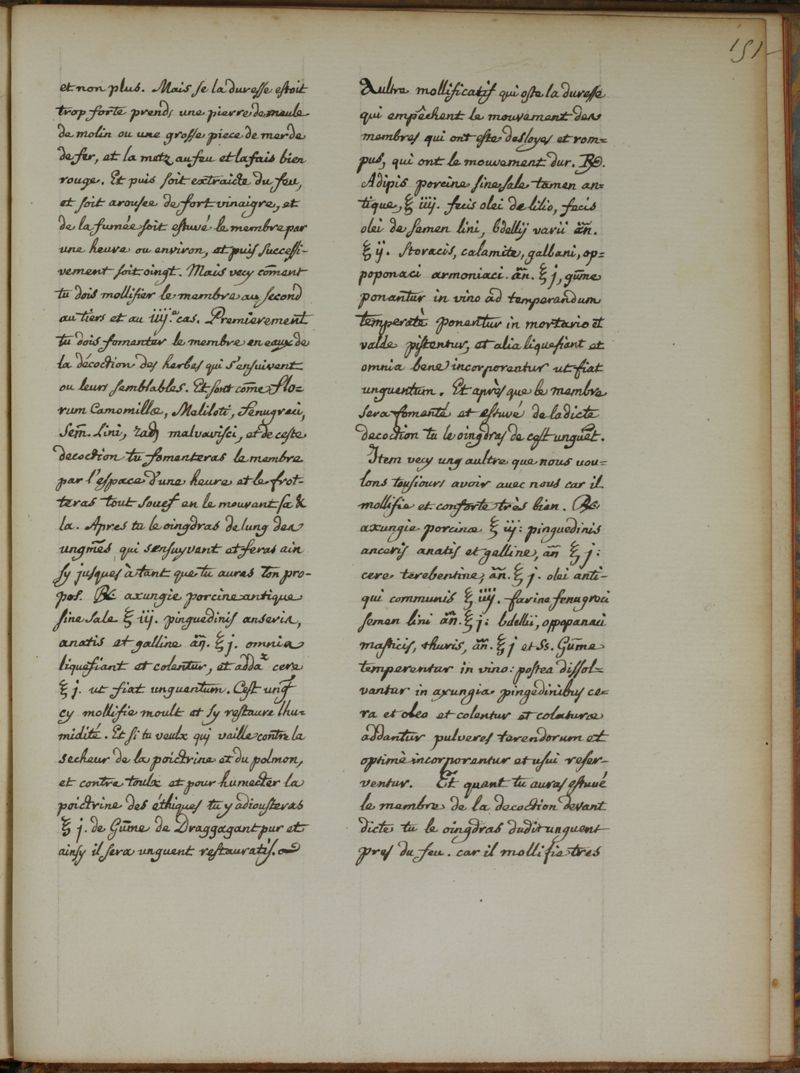 151
et non plus. Mais se la duresse estoit
trop forte prends une pierre de meule
de molin ou une grosse piece de merde
de fer, et la metz au feu et la fais bien
rouge. Et puis soit extraicte du feu,
et soit arousee de fort vinaigre, et
de la fumée soit estuvé le membre par
une heure ou environ, et puis successi-
vement soit oingt. Mais vecy cōment
tu dois mollifier le membre au second
au tiers et au iiij.e cas. Premierement
tu dois fomenter le membre en eaux de
la décoction des herbes qui s'ensuivent
ou leurs semblables. Et sont cōme Flo=
rum Camomillæ, Meliloti, Fenugreci,
Sem̄. Lini, rad malvavisci, et de ceste
decoction tu fomenteras le membre
par l'espace d'une heure et le frot-
teras tout souef en le mouvant sa &
la. Apres tu le oingdras de lung des
ungm̄es qui sensuyvent et feras ain
sy jusques à tant que tu auras ton pro-
pos. ℞ axungie porcine antique
sine sale ℥ iij. pinguedinis anseris,
anatis et galline añ. ℥ j. omnia
liquefiant et colentur, et addax cere
℥ j. ut fiat unguentum. Cest ungt
cy mollifie moult et sy restaure lhu=
midité. Et si tu veulx qu'il vaille contre la
secheur de la poictrine et du polmon,
et contre toulx et pour humecter la
poictrine des éthiques tu y adiousteras
℥ j. de Gūme de Draggagant pur et
ainsy il sera unguent restauratif.
Aultre mollificatif qui oste la duresse
qui empêchent le mouvement des
membres qui ont este desloyes et rom=
pus, qui ont le mouvement dur. ℞.
Adipis porcine sine sale tamen an=
tique, ℥ iiij. fecis olei de lilio, fecis
olei de semen lini, bdellij varii añ.
℥ ij. storacis, calamite, galbani, op=
poponaci armoniaci. añ. ℥ j, gūme
ponantur in vino ad temperandum
temperatè ponentur in mortario et
valde pistentur, et alia liquefiant et
omnia bene incorporentur ut fiat
unguentum. Et après que le membre
sera fomenté et estuvé de la dicte
decoction tu le oingdres de cest unguēt.
Item vecy ung aultre que nous vou=
lons tousiours avoir avec nous car il
mollifie et conforte très bien. ℞
axungie porcinæ ℥ iij: pinguedinis
anceris anatis et galline, añ ℥ j:
cere terebentine, añ. ℥ j. olei anti-
qui communis ℥ iiij. farine fenugreci
semen lini añ. ℥ j: bdellii, oppopanaci
masticis, thuris, añ. ℥ j et Ss. Gūme
temperentur in vino: postea dissol-
vantur in axungia pingedinibus ce=
ra et oleo et colentur et colaturæ
addantur pulveres terendorum et
optimè incorporentur et usui reser-
ventur. Et quant tu auras estuvé
le membre de la decoction devant
dicte tu le oingdras dudit unguent
pres du feu. car il mollifie tres